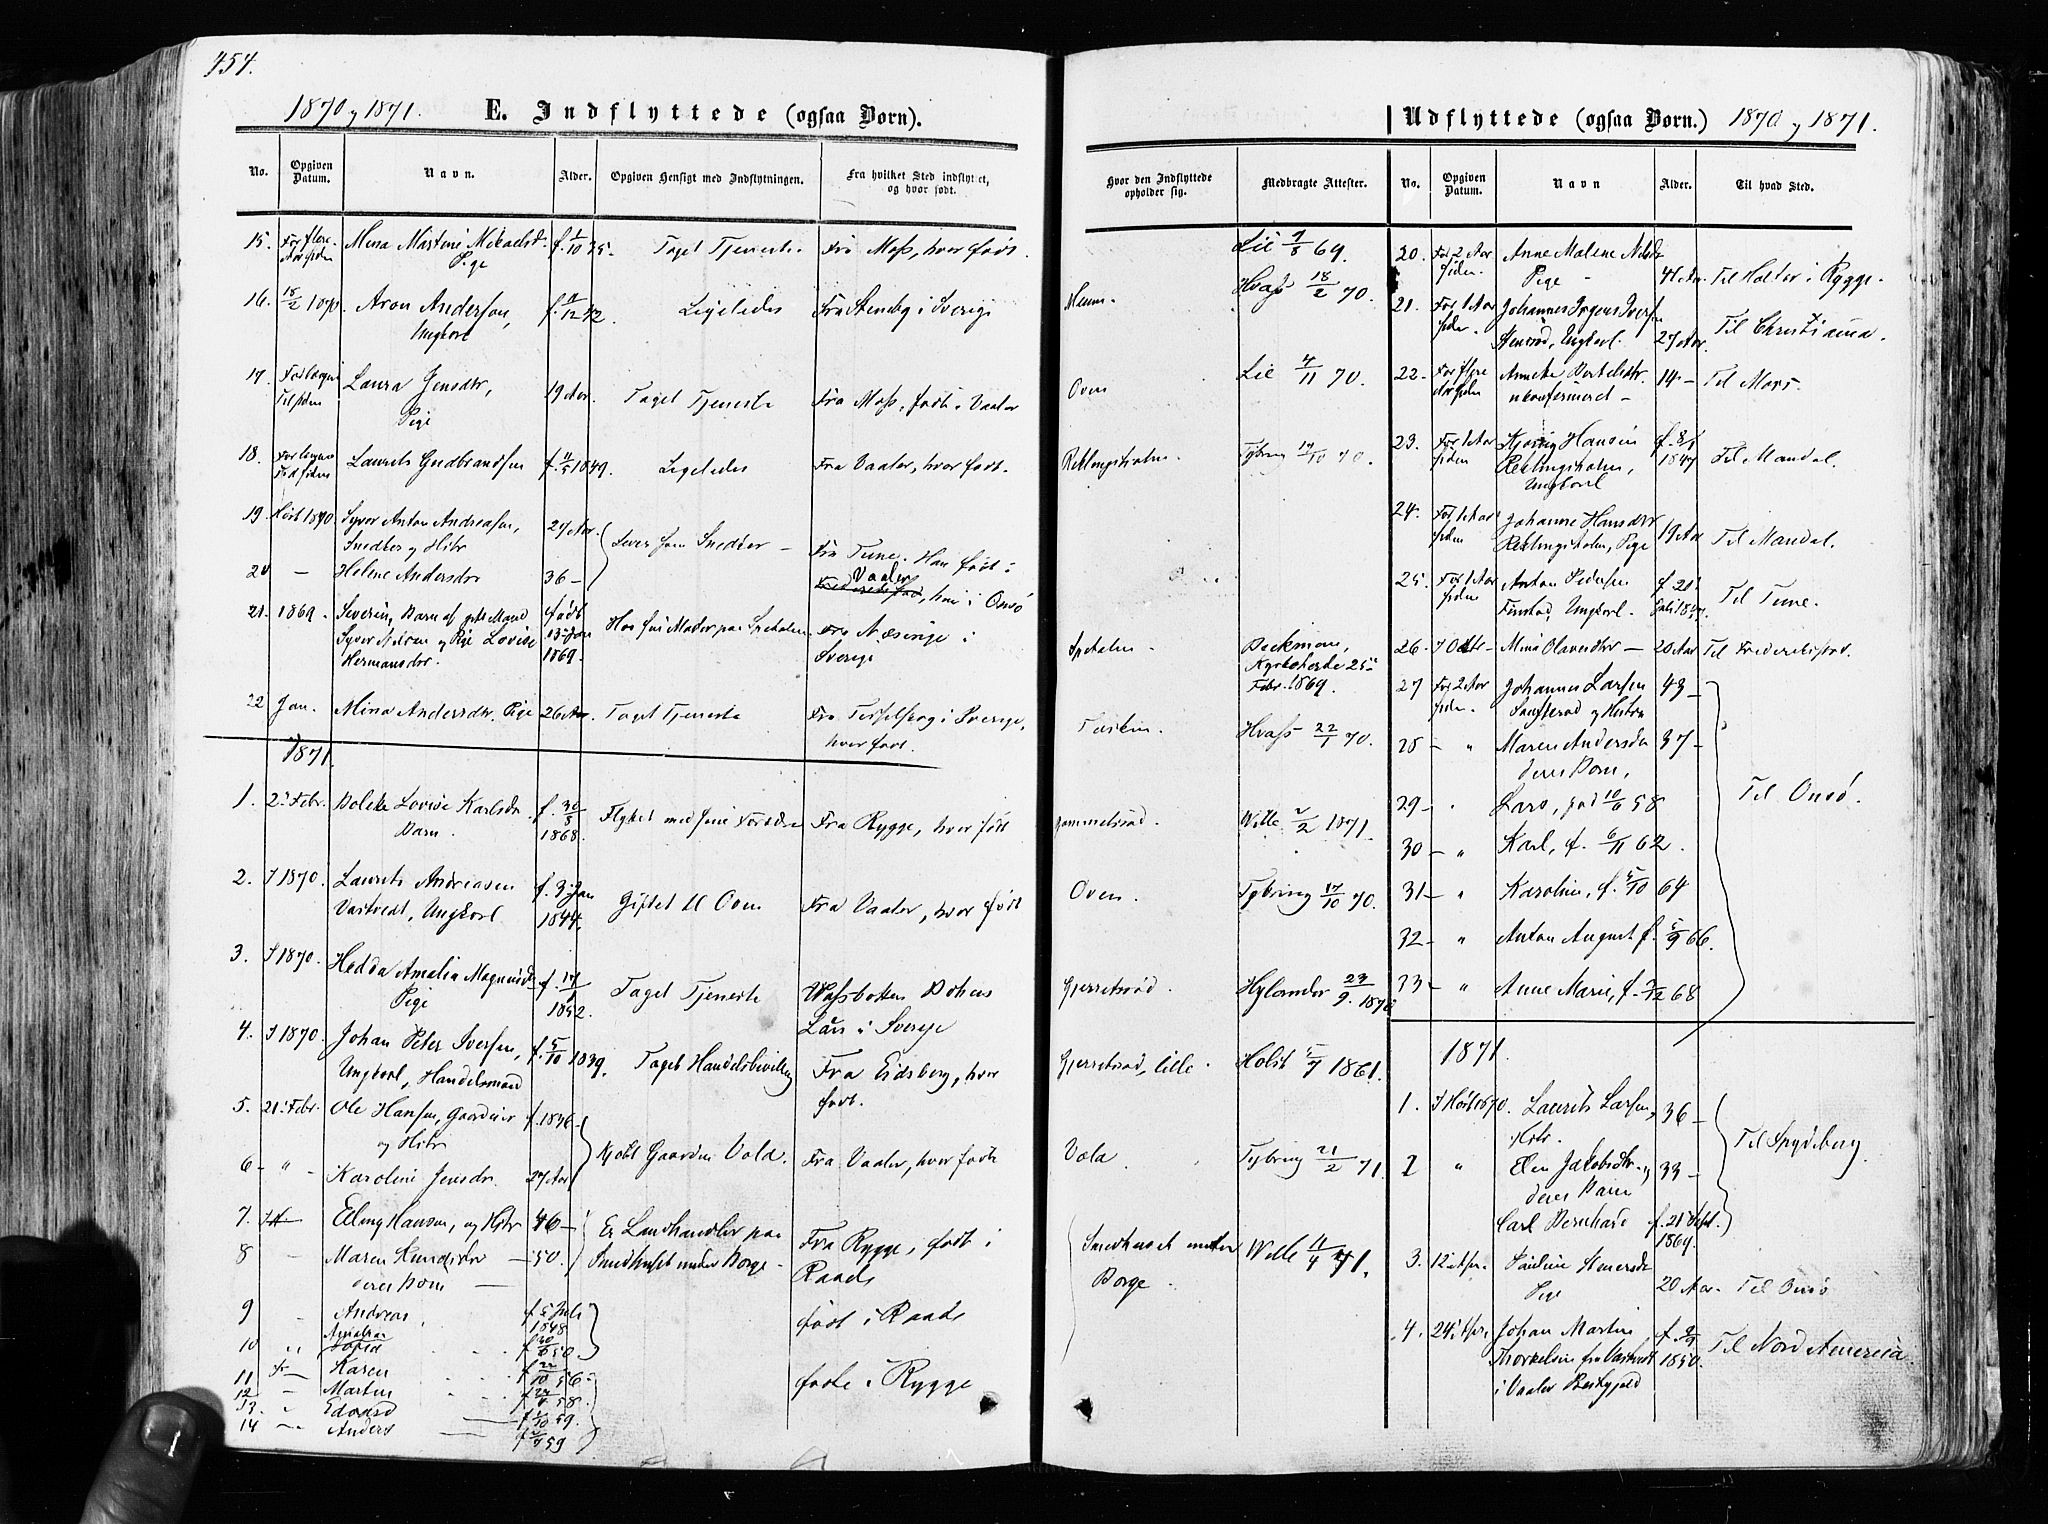 454.
1870 og 1871. E. Indflyttede (ogsaa Børn).
No. Opgiven Datum. Navn. Alder. Opgiven Hensigt med Indflytningen. Fra hvilket Sted indflyttet, og hvor født.
15. For flere Aar siden Mina Martine Mikaelsd. Pige f. 1/10 35. Taget Tjeneste Fra Moss, hvor født.
16. 18/2 1870. Aron Anderson, Ungkarl Ligeledes i Sverige
17. Laura Jensdtr, Pige 19 Aar. Taget Tjeneste Fra Moss, født i Vaaler
18. Laurits Gudbrandsen 1849. Ligeledes Fra Vaaler, hvor født.
19. Høst 1870. Syver Anton Andreasen, Snedker og Hstr 27 Aar. Lever som Snedker – Fra Tune. Han født i Vaaler
20 – Helene Andersdtr 36 – hun i Onsø
21. 1869. Severin, Barn af gift Mand Syver Nilsen og Pige Lovise Hermansdtr. født 13 Jan 1869. Hos sin Moder paa Spetalen Fra Næsinge i Sverige
22 Jan. Mina Andersdtr. Pige 26 Aar. Taget Tjeneste Fra i Sverige, hvor født.
1871.
1. 2 Febr. Bolette Lovise Karlsdtr. Barn. f. 30/3 1868. Flyttet med sine Forældre Fra Rygge, hvor født
2. I 1870. Laurits Andreasen Vastvedt, Ungkarl f. 3 Jan 1844. Giftet til Oven Fra Vaaler, hvor født
3. I 1870. Hedda Amalia Magnusd. Pige 1852. Taget Tjeneste Bohus Län i Sverige
4. I 1870. Johan Peter Iversen, Ungkarl, Handelsmand f. 5/10 1839. Taget Handelsbevilling Fra Eidsberg, hvor født.
5. 21 Febr. Ole Hansen, Gaardeier og Hstr f. 1836 – Kjøbt Gaarden Vold. Fra Vaaler, hvor fødte
6 – " – Karoline Jensdr. 27 Aar
7. Elling Hansen, og Hstr 46 – Er Landhandler paa Smedhuset under Borge – Fra Rygge, født i Raade
8 – Maren – 50. deres Børn –
9 – Andreas f. 5 Juli 1848 født i Raade
10 " Sofia 50.
11 Karen f. 22/10 56 fødte i Rygge
12 – Martin 58.
13. " Edvard 59.
14 – Anders 59
Hvor den Indflyttede opholder sig. Medbragte Attester.
Lie 69.
Hvass 18/2 70.
Oven Lie 4/11 70.
Rellingsholm. Tybring 17/10 70.
Spetalen – Beckman, 25 Febr. 1869.
Taskin. Hvass 22/1 70.
Gammelsrød. Wille 2/2 1871.
Oven. Tybring 17/10 70.
Gjerretsrød. Hylander 23/9. 1870
Gjerretsrød, lille. Holst 5/7 1861.
Vold. Tybring 21/2 71.
Smedhuset under Borge. Wille 11/4 71.
Udflyttede (ogsaa Børn.) 1870 og 1871.
No. Opgiven Datum. Navn Alder. Til hvad Sted.
20. For 2 Aar siden. Anne Malene Nilsdr Pige – 41 Aar. Til Halter i Rygge.
21. For 1 Aar siden. Johannes Jørgens Iversen Stensrød, Ungkarl. 27 Aar. Til Christiania.
22. For flere Aar siden Anneke Bertelsdtr. ukonfirmeret – 14 – Til Moss.
23. For 1 Aar siden Hansen Rellingsholm, Ungkarl 1847 Til Mandal.
24. For 1 Aar siden Johanne Hansdtr Rellingsholm, Pige 19 Aar Til Mandal.
25. For 1 Aar siden Anton Pedersen Finstad, Ungkarl. f. 21 Juli Til Tune.
26. I Oktbr – Mina Olavesdtr – 20 Aar Til Frederikstad.
27 For 2 Aar siden. Johannes Larsen og Hustru 43 –
28 – " Maren Andersdr 37 – deres Børn, Til Onsø.
29 – " Lars, fød 58
30 – " Karl, f. 6/11 62.
31 – " Karoline, f. 5/10 64
32 – " Anton August f. 5/9 66.
33 – " Anne Marie, f. 68
1871.
1. I Høst 1870. Laurits Larsen, Hstr. 36 – Til Spydeberg.
2 " Elen Jakobsdtr og deres Barn 33 –
Carl Bernhard f. 21 Sept. 1869.
3. 12 Apr. Pige 20 Aar. Til Onsø
4. 24 Apr. Johan Martin Thorkelsen fra Vastvedt i Vaaler 1850. Til Nord Amerika.